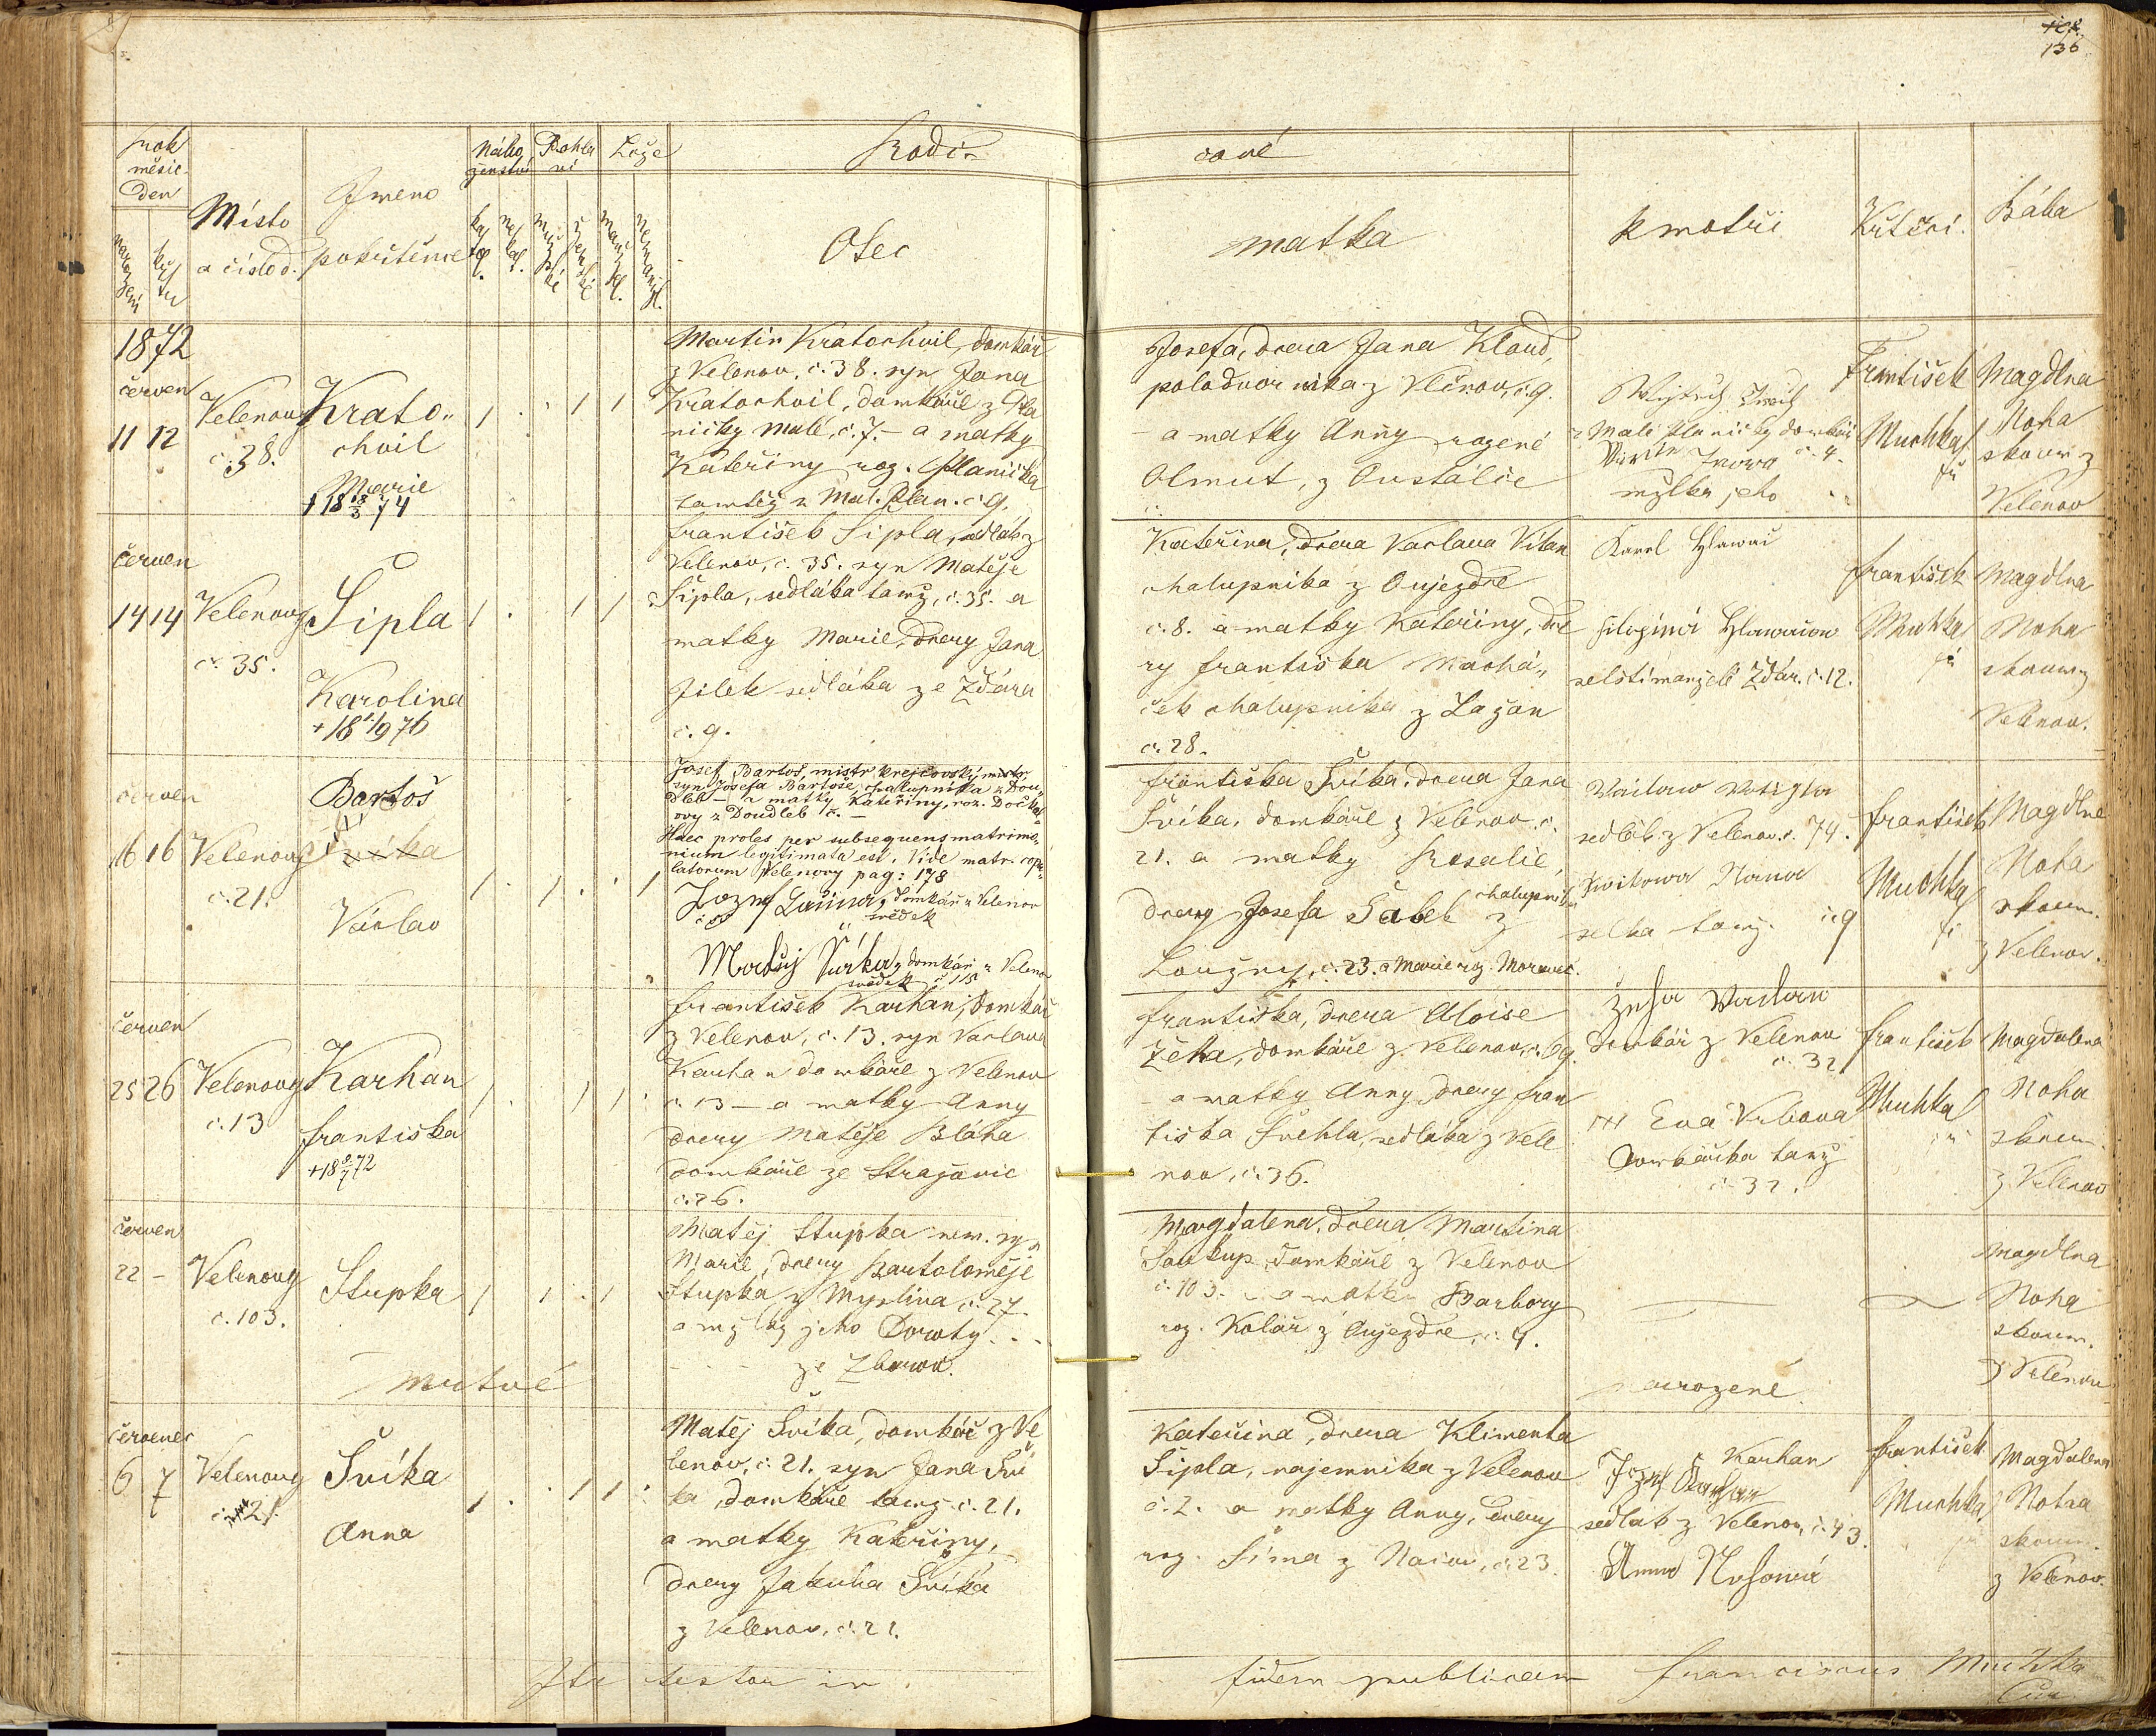 136
Rok
měsíc
den
Místo
a číslo d.
Jmeno
pokřtěnce
Nábo
ženství
Pohla
ví
Lože
Rodi-
čové
Otec
matka
kmotři
Křtící.
Bába
1872
červen
11 12
Velenovy
č. 38.
Krato-
chvil
Marie
Martin Kratochvil, domkář
z Velenov, č. 38. syn Jana
Kratochvil, domkáře z Pla
ničky Malé, č. 7. – a matky
Kateřiny roz. Planička
tamtéž z Mal. Plan. č. 9.
Josefa, dcera Jana Kloud,
polodvorníka z Vlčnov, č. 9.
– a matky Anny rozené
Olmut, z Oustalic
z Malé Planičky domkář
č. 4.
jeho
František
Muchka
Magdlna
Noha
zkouš. z
Velenov
červen
14 14
Velenovy
č. 35.
Šipla
Karolina
František Šipla, sedlák z
Velenov, č. 35. syn Matěje
Šipla, sedláka tamž, č. 35. a
matky Marie, dcery Jana
Jilek sedláka ze Ždára
č. 9.
Kateřina, dcera Vaclava Vitan
chalupníka z Oujezdce
č. 8. a matky Kateřiny, dce
ry Františka Machá-
ček chalupníka z Lažan
č. 28.
Karel Hlawač
selští manželé Ždár. č. 12.
František
Muchka
Magdlna
Noha
zkouš. z
Velenov.
červen
16 16
Velenovy
č. 21.
Bartoš
Švíka
Václav
Josef Bartoš, mistr krejčovský
syn Josefa Bartoše, chalupníka z Dou-
dleb – a matky Kateřiny, roz.
z Doudleb č. –
Haec proles per subsequens matrimo-
nium legitimata est. Vide matr. copu-
latorum Velenovy pag: 178
domkář z Velenov
svědek
Matěj Švíka, domkář z Velenov
svědek č. 115
Františka Švíka, dcera Jana
Švíka, domkáře z Velenov č.
21. a matky Rosalie,
dcery Josefa Šabek chalupníka z
Loužný, č. 23. a Marie roz. Moravec.
sedlák z Velenov č. 74.
selka tamž. č. 9
František
Muchka
Magdlna
Noha
zkouš.
z Velenov.
červen
25 26
Velenovy
č. 13
Karhan
Františka
František Karhan, domkář
z Velenov, č. 13. syn Vaclava
Karhan domkáře z Velenov
č. 13 – a matky Anny
dcery Matěje Bláha
domkáře ze Stražovic
č. 26.
Františka, dcera Aloise
Žeha, domkáře z Velenov, č. 69.
– a matky Anny dcery Fran
tiška Švehla, sedláka z Vele
nov, č. 36.
Žeha Vaclav
domkář z Velenov
č. 32
+++ Eva Vrbova
domkářka tamž
č. 32.
František
Muchka
Magdalena
Noha
zkouš.
z Velenov
červen
22 –
Velenovy
č. 103.
Stupka
Matěj Stupka nem. syn
Marie, dcery Bartoloměje
Stupka z Myslína č. 27.
a mžlky jeho Doroty . . .
. . . ze Zborov.
Magdalena, dcera Martina
Soukup domkáře z Velenov
č. 103. – a matky Barbory
roz. Kolář z Oujezdce, č. 4.
Magdlna
Noha
zkouš.
z Velenov
mrtvé
narozené.
červenec
6 7
Velenovy
č. 21.
Švíka
Anna
Matěj Švíka, domkář z Ve
lenov, č. 21. syn Jana Šví
ka, domkáře tamž č. 21.
a matky Kateřiny,
dcery Jakuba Švíka
z Velenov, č. 21.
Kateřina, dcera Klimenta
Šipla, najemníka z Velenov
č. 2. a matky Anny, dcery
roz. Šíma z Načov, č. 23.
Karhan
sedlák z Velenov, č. 43.
Anna
František
Muchka
Magdalena
Noha
zkouš.
z Velenov.
Ita testor in
fidem publicam
Franciscus Muchka
Cur.